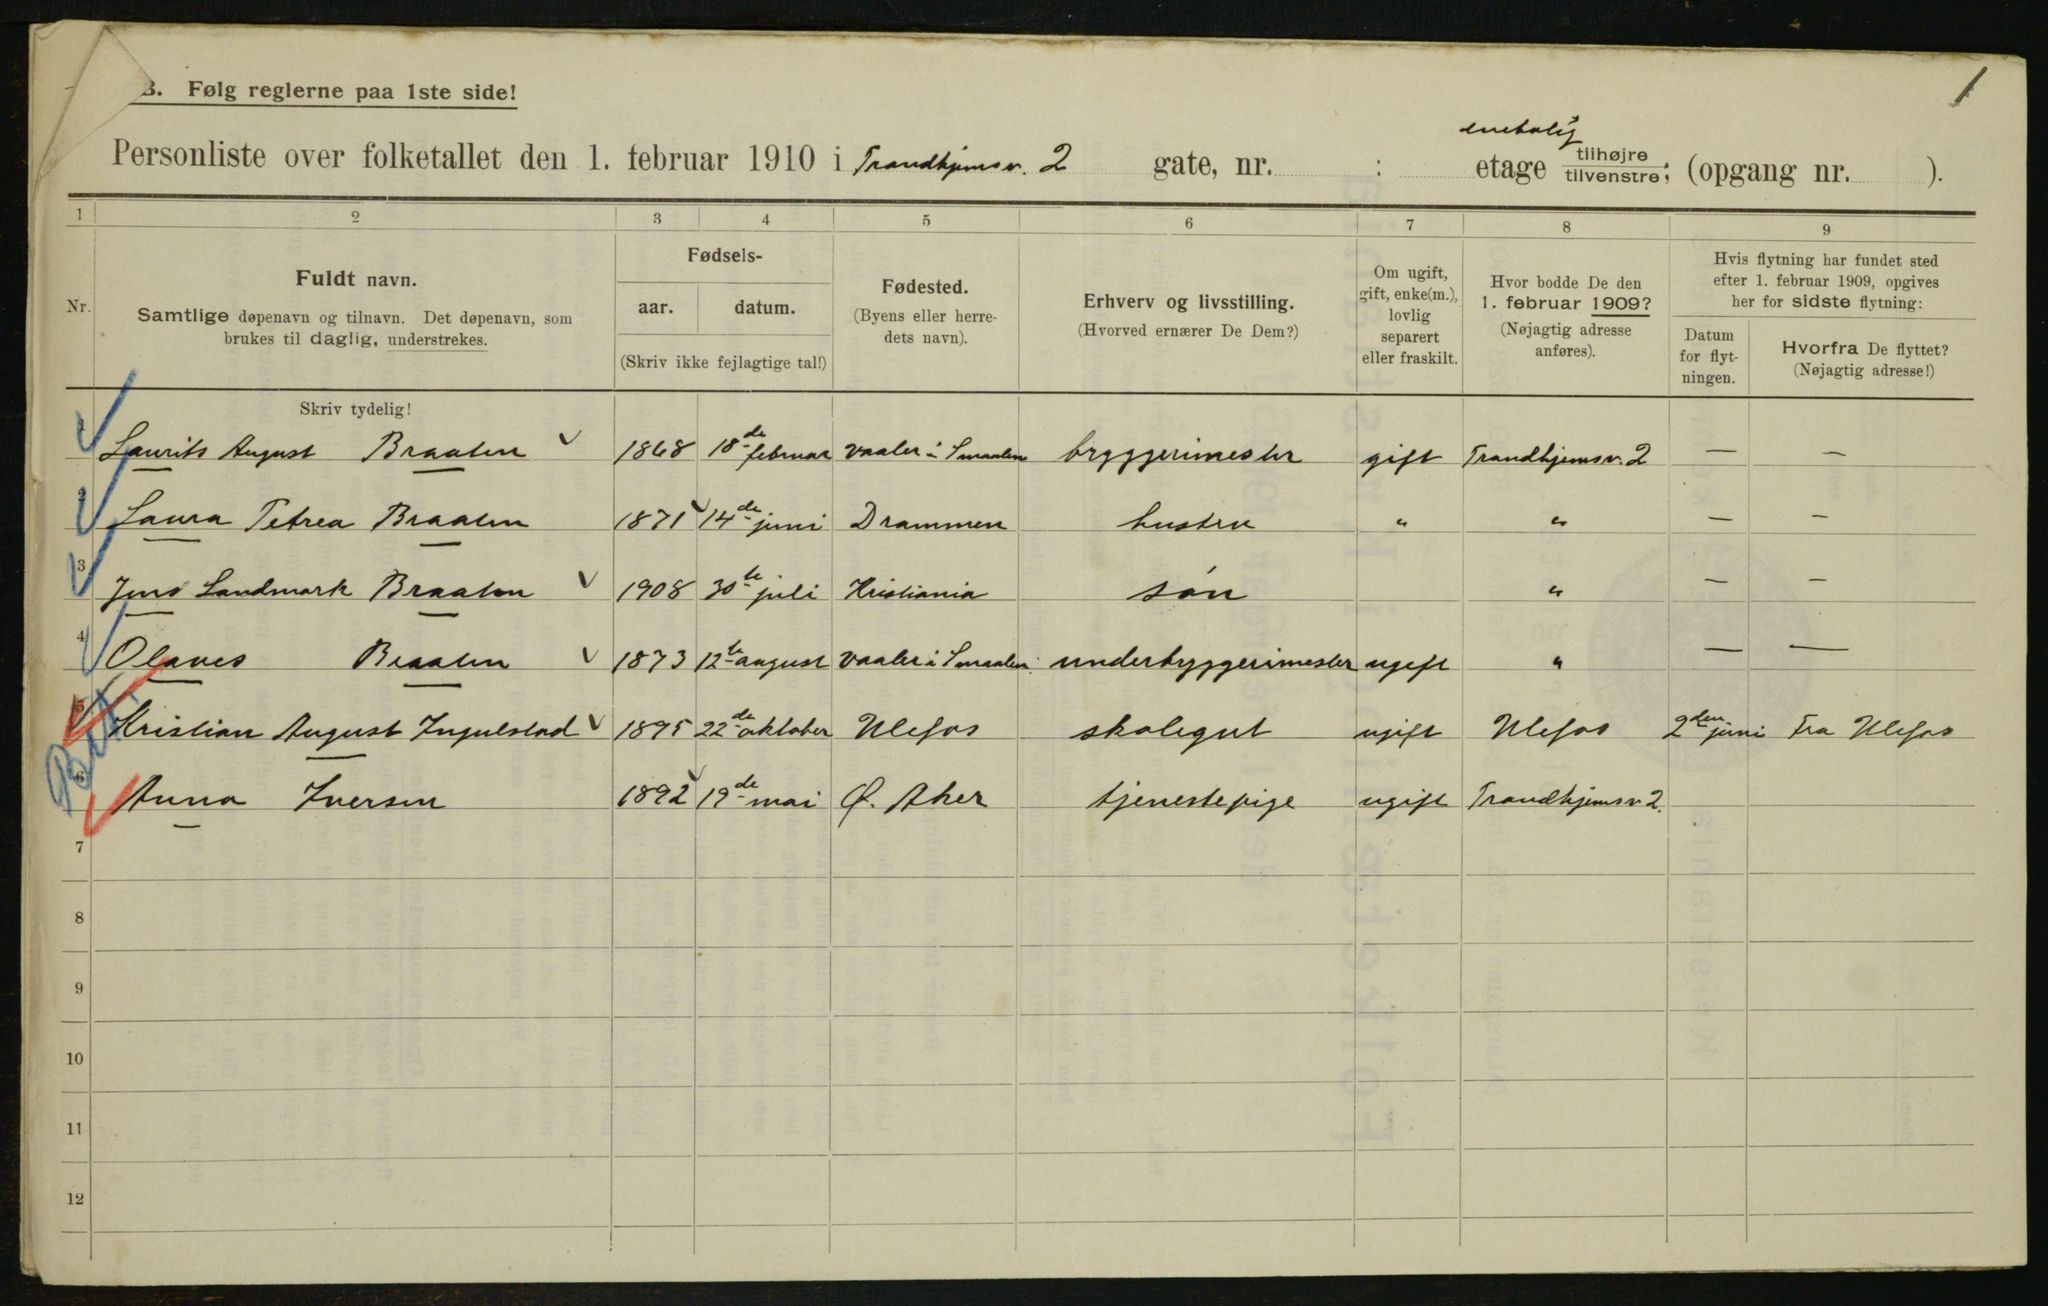 B. Følg reglerne paa 1ste side!
1
enebolig
Personliste over folketallet den 1. februar 1910 i Trondhjemsv. 2 gate, nr. : etage tilhøjre tilvenstre; (opgang nr. ).
1 2 3 4 5 6 7 8 9
Nr.
Fuldt navn.
Samtlige døpenavn og tilnavn. Det døpenavn, som
brukes til daglig, understrekes.
Skriv tydelig!
Fødsels-
aar. datum.
(Skriv ikke fejlagtige tal!)
Fødested.
(Byens eller herre-
dets navn).
Erhverv og livsstilling.
(Hvorved ernærer De Dem?)
Om ugift,
gift, enke(m.),
lovlig
separert
eller fraskilt.
Hvor bodde De den
1. februar 1909?
(Nøjagtig adresse
anføres).
Hvis flytning har fundet sted
efter 1. februar 1909, opgives
her for sidste flytning:
Datum
for flyt-
ningen.
Hvorfra De flyttet?
(Nøjagtig adresse!)
1 Laurits August Braaten 1868 18de februar Vaaler i Smaalen bryggerimester gift Trondhjemsv. 2 — —
2 Laura Petrea Braaten 1871 14de juni Drammen hustru " " — —
3 Jens Landmark Braaten 1908 30te juli Kristiania søn " — —
4 Olaves Braaten 1873 12te august Vaaler i Smaalen underbryggerimester ugift " — —
5 Kristian August Ingulstad 1895 22de oktober Ulefos skolegut ugift Ulefos 2den juni Fra Ulefos
6 Anna Iversen 1892 19de mai Ø. Aker tjenestepige ugift Trondhjemsv 2.
7
8
9
10
11
12